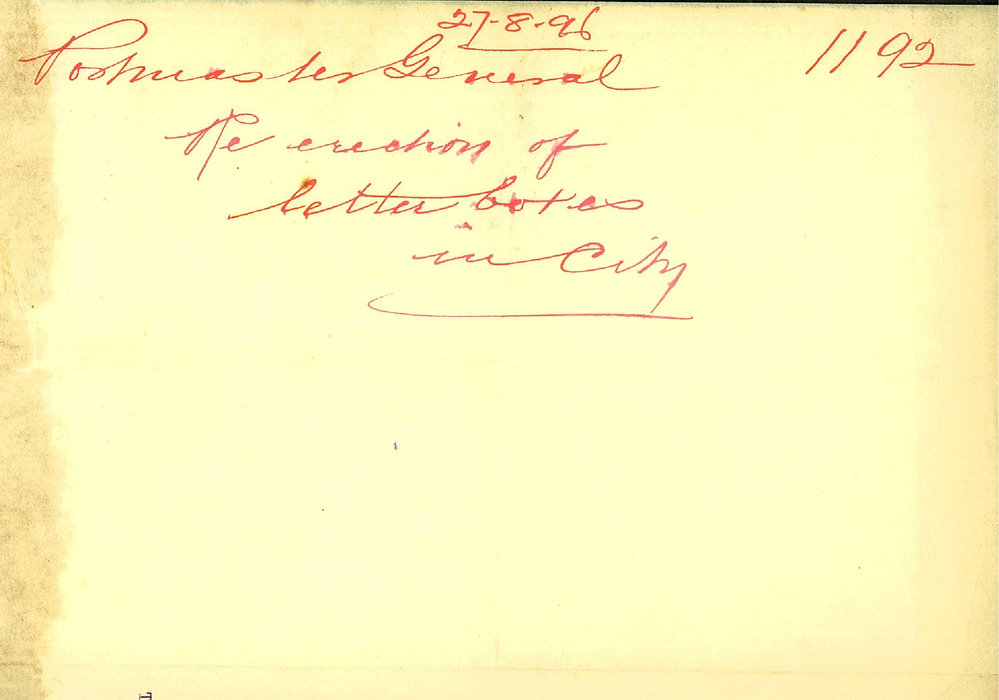 27-8-96
Postmaster General 1192
Re erection of
letter boxes
in City